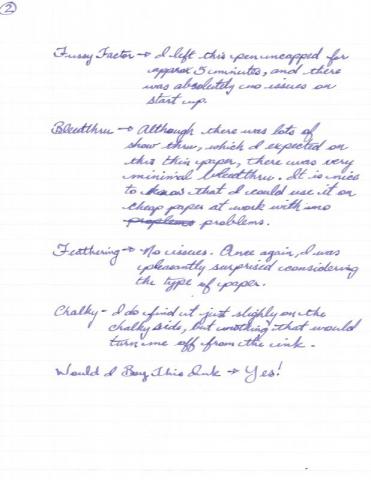 2
Fussy Factor → I left this pen uncapped for
approx 5 minutes, and there
was absolutely no issues on
start up.
Bleedthru → Although there was lots of
show thru, which I expected on
this thin paper, there was very
minimal bleedthru. It is nice
to know that I could use it on
cheap paper at work with no
problems problems.
Feathering → No issues. Once again, I was
pleasantly surprised considering
the type of paper.
Chalky - I do find it just slighly on the
chalky side, but nothing that would
turn me off from the ink.
Would I Buy This Ink → Yes!